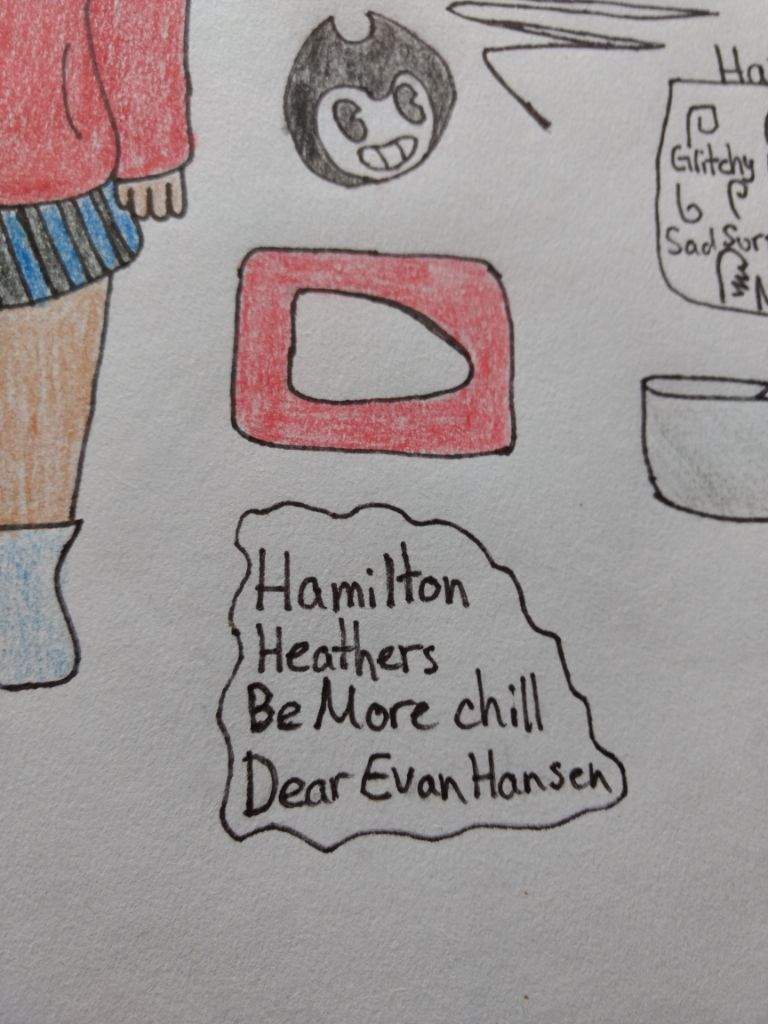 Ha
Glitchy
Sad
Hamilton
Heathers
Be More chill
Dear Evan Hansen